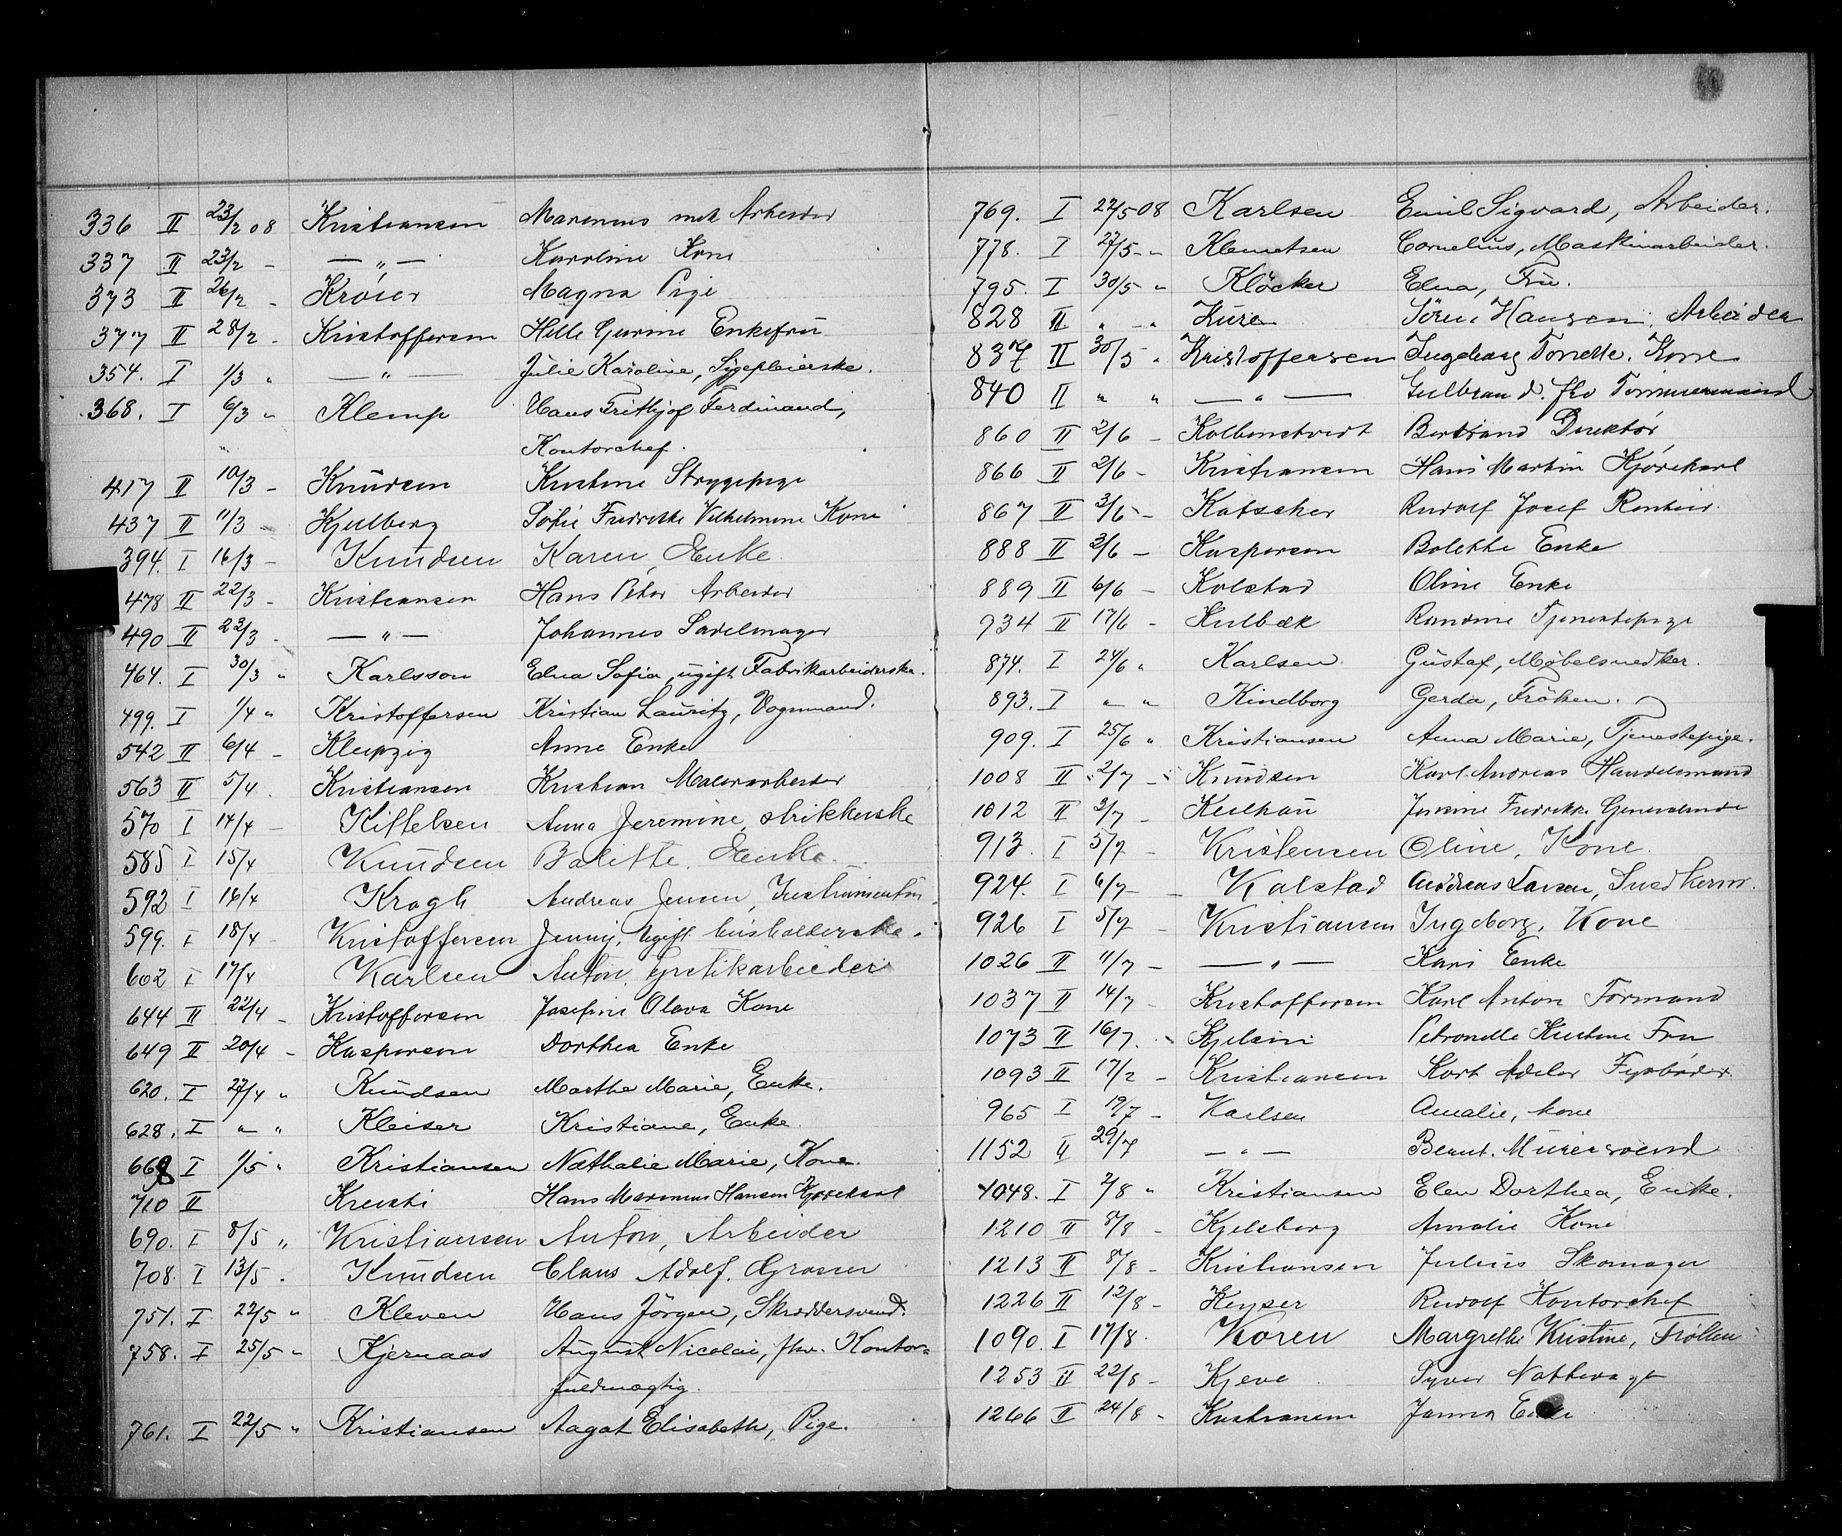 336 II 23/2 08 Kristiansen Marenius mek Arbeider
337 II 23/2 - — „ — Karoline Kone
373 II 26/2 - Kröier Magna Pige
377 II 28/2 - Kristoffersen Helle Gurine Enkefru
354. I 1/3 „ — „ — Julie Karoline, Sygepleierske.
368. I 6/3 „ Klemp Hans Fritjof Ferdinand,
Kontorchef.
417 II 10/3 - Knudsen Kristine Strygepige
437 II 11/3 - Kjulberg Sofie Fredrikke Vilhelmine Kone
394. I 16/3 - Knudsen Karen, Enke
478 II 22/3 - Kristiansen Hans Peter Arbeider
490 II 23/3 - — „ — Johannes Sadelmager
464. I 30/3 „ Karlsson Elna Sofia, ugift Fabrikarbeiderske.
499. I 1/4 „ Kristoffersen Kristian Lauritz, Vognmand.
542 II 6/4 - Kleipzig Anne Enke
563 II 5/4 . Kristiansen Kristian Malerarbeider
570 I 14/4 - Kittelsen Anna Jeremine, strikkerske
585 I 15/4 Knudsen Bolette. Enke.
592 I 16/4 Krogh Andreas Jensen,
599. I 18/4 - Kristoffersen Jenny, Ugift husholderske.
602 I 17/4 Karlsen Anton,
644 II 22/4 - Kristoffersen Josefine Olava Kone
649 II 20/4 - Kaspersen Dorthea Enke
620. I 27/4 „ Knudsen Marthe Marie, Enke.
628. I „ „ Kleiser Kristiane, Enke.
668 I 1/5 „ Kristiansen Nathalie Marie, Kone.
710 II Kreisti Hans Marenius Hansen Kjørekarl
690. I 8/5 „ Kristiansen Anton, Arbeider
708. I 13/5 . Knudsen Claus Adolf. Grosser
751. I 22/5 „ Kleven Hans Jörgen, Skræddersvend.
758. I 25/5 „ Kjernaas August Nicolai, fhv. Kontor=
fuldmægtig.
761. I 22/5 „ Kristiansen Aagot Elisabeth, Pige.
769. I 22/5 08 Karlsen Emil Sigvard, Arbeider.
778. I 27/5 - „ Klemetsen Cornelius, Maskinarbeider.
795. I 30/5 „ Klöcker Elna, Fru.
828 II „ „ Kure Sören Hansen. Arbeider
837 II 30/5 . Kristoffersen Ingeborg Tonette. Kone
840 II „ „ — „ — Gulbrand. fhv Tømmermand
860 II 2/6 - Kolbenstvedt Bertrand Direktör
866 II 2/6 - Kristiansen Hans Martin Kjörekarl
867 II 3/6 - Katscher Rudolf Josef Rentier.
888 II 3/6 - Kaspersen Bolette Enke
889 II 6/6 - Kolstad Oline Enke
934 II 17/6 - Kulbæk Randine Tjenestepige
874. I 24/6 „ Karlsen Gustaf, Møbelsnedker.
893. I „ „ Kindborg Gerda, Fröken.
909. I 25/6 „ Kristiansen Anna Marie, Tjenestepige.
1008 II 2/7 - Knudsen Karl Andreas Handelsmand
1012 II 2/7 - Keilhau Fredrikke
913. I 5/7 - Kristensen Oline, Kone.
924. I 6/7 - Kolstad Andreas Larsen, Snedkerm.
926 I 5/7 Kristiansen Ingeborg, Kone
1026 II 11/7 - — „ — Kari Enke
1037 II 14/7 - Kristoffersen Karl Anton Formand
1073 II 16/7. Kjelsin Petronelle Kirstine Fru
1093 II 17/7 - Kristiansen Kort Adeler Fyrbøder.
965 I 19/7 - Karlsen Amalie, kone
1152 II 29/7 — „ — Bernt. Murersvend
1048. I 2/8 „ Kristiansen Elen Dorthea, Enke.
1210 II 8/8 - Kjelsberg Amalie Kone
1213 II 8/8 - Kristiansen Julius Skomager
1226 II 12/8 - Keyser Rudolf Kontorchef
1090. I 17/8. Koren Margrethe Kristine, Frøken
1253 II 22/8 - Kjeve Syver Nattevagt
1266 II 24/8 - Kristiansen Janna Enke